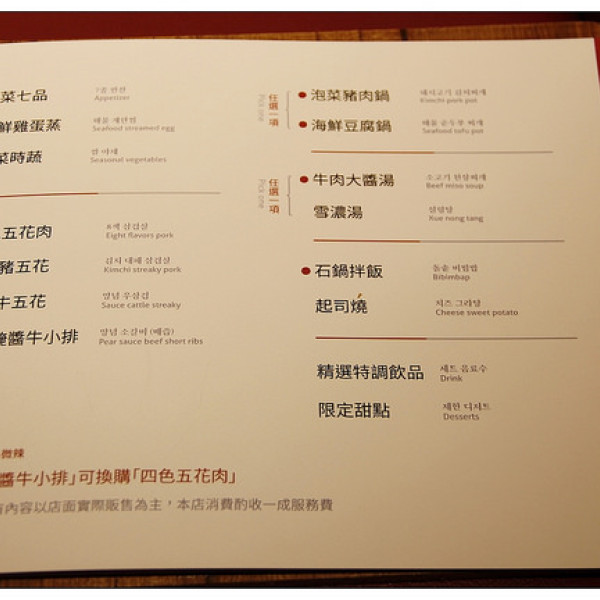 菜七品
Appetizer
鮮雞蛋蒸
해물 계란찜
Seafood streamed egg
菜時蔬
Seasonal vegetables
五花肉
8색 삼겹살
Eight flavors pork
豬五花
김치 대패 삼겹살
Kimchi streaky pork
牛五花
양념 우삼겹
Sauce cattle streaky
醃醬牛小排
양념 소갈비 (배즙)
Pear sauce beef short ribs
微辣
醬牛小排」可換購「四色五花肉」
內容以店面實際販售為主,本店消費酌收一成服務費
任選一項
Pick one
泡菜豬肉鍋
돼지고기 김치찌개
Kimchi pork pot
海鮮豆腐鍋
해물 순두부 찌개
Seafood tofu pot
任選一項
Pick one
牛肉大醬湯
소고기 된장찌개
Beef miso soup
雪濃湯
설렁탕
Xue nong tang
石鍋拌飯
돌솥 비빔밥
Bibimbap
起司燒
치즈 그라탕
Cheese sweet potato
精選特調飲品
세트 음료수
Drink
限定甜點
제한 디저트
Desserts